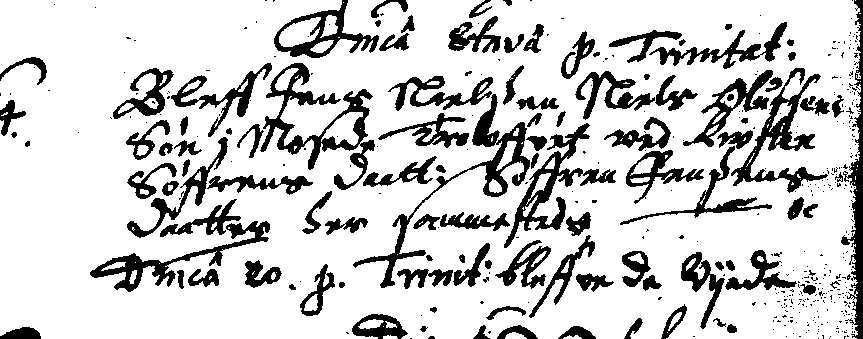 Dnicâ 8tavâ p. Trinitat:
4. Bleff Jens Nielsen Niels Oluffsens
Søn i Mosede Troloffvet med Kirsten
Søffrens daatt: Søffren Jensens
daatter her sammesteds
Dnicâ 20. p. Trinit: bleffve de Vijede.